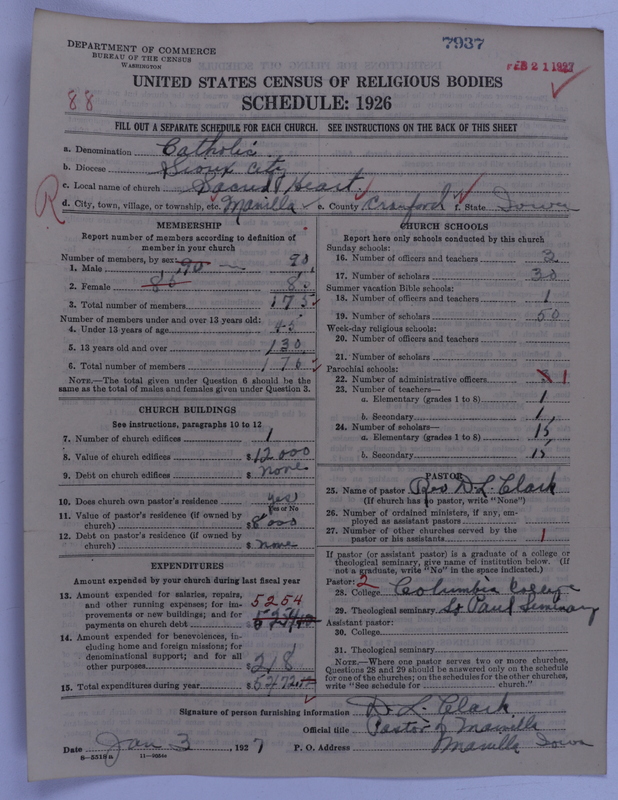 DEPARTMENT OF COMMERCE
BUREAU OF THE CENSUS
WASHINGTON
7937
FEB 21 1927
UNITED STATES CENSUS OF RELIGIOUS BODIES
88
SCHEDULE: 1926
FILL OUT A SEPARATE SCHEDULE FOR EACH CHURCH. SEE INSTRUCTIONS ON THE BACK OF THIS SHEET
a. Denomination Catholic
b. Diocese Sioux City
c. Local name of church Sacred Heart
R
d. City, town, village, or township, etc. Manilla e. County Crawford f. State Iowa
MEMBERSHIP
Report number of members according to definition of
member in your church
Number of members, by sex:
1. Male 90 90
2. Female 85 85
3. Total number of members 175
Number of members under and over 13 years old:
4. Under 13 years of age 45
5. 13 years old and over 130
6. Total number of members 175
NOTE.—The total given under Question 6 should be the
same as the total of males and females given under Question 3.
CHURCH BUILDINGS
See instructions, paragraphs 10 to 12
7. Number of church edifices 1
8. Value of church edifices $12000
9. Debt on church edifices $ none
10. Does church own pastor's residence yes
Yes or No
11. Value of pastor's residence (if owned by
church) $8000
12. Debt on pastor's residence (if owned by
church) $ none
EXPENDITURES
Amount expended by your church during last fiscal year
13. Amount expended for salaries, repairs,
and other running expenses; for im-
provements or new buildings; and for
payments on church debt $ 5254
14. Amount expended for benevolences, in-
cluding home and foreign missions; for
denominational support; and for all
other purposes $218
15. Total expenditures during year $5472
CHURCH SCHOOLS
Report here only schools conducted by this church
Sunday schools:
16. Number of officers and teachers 2
17. Number of scholars 30
Summer vacation Bible schools:
18. Number of officers and teachers 1
19. Number of scholars 50
Week-day religious schools:
20. Number of officers and teachers
21. Number of scholars
Parochial schools:
22. Number of administrative officers 1
23. Number of teachers—
a. Elementary (grades 1 to 8) 1
b. Secondary 1
24. Number of scholars—
a. Elementary (grades 1 to 8) 15
b. Secondary 15
PASTOR
25. Name of pastor Rev D L. Clark
(If church has no pastor, write "None")
26. Number of ordained ministers, if any, em-
ployed as assistant pastors
27. Number of other churches served by the
pastor or his assistants 1
If pastor (or assistant pastor) is a graduate of a college or
theological seminary, give name of institution below. (If
not a graduate, write "No" in the space indicated.)
Pastor: 2
28. College Columbia College
29. Theological seminary St Paul Seminary
Assistant pastor:
30. College
31. Theological seminary
NOTE.—Where one pastor serves two or more churches,
Questions 28 and 29 should be answered only on the schedule
for one of the churches; on the schedules for the other churches,
write "See schedule for church."
Signature of person furnishing information D. L. Clark
Official title Pastor of Manilla
Date Jan 3, 1927 P. O. Address Manilla Iowa
8-5518a